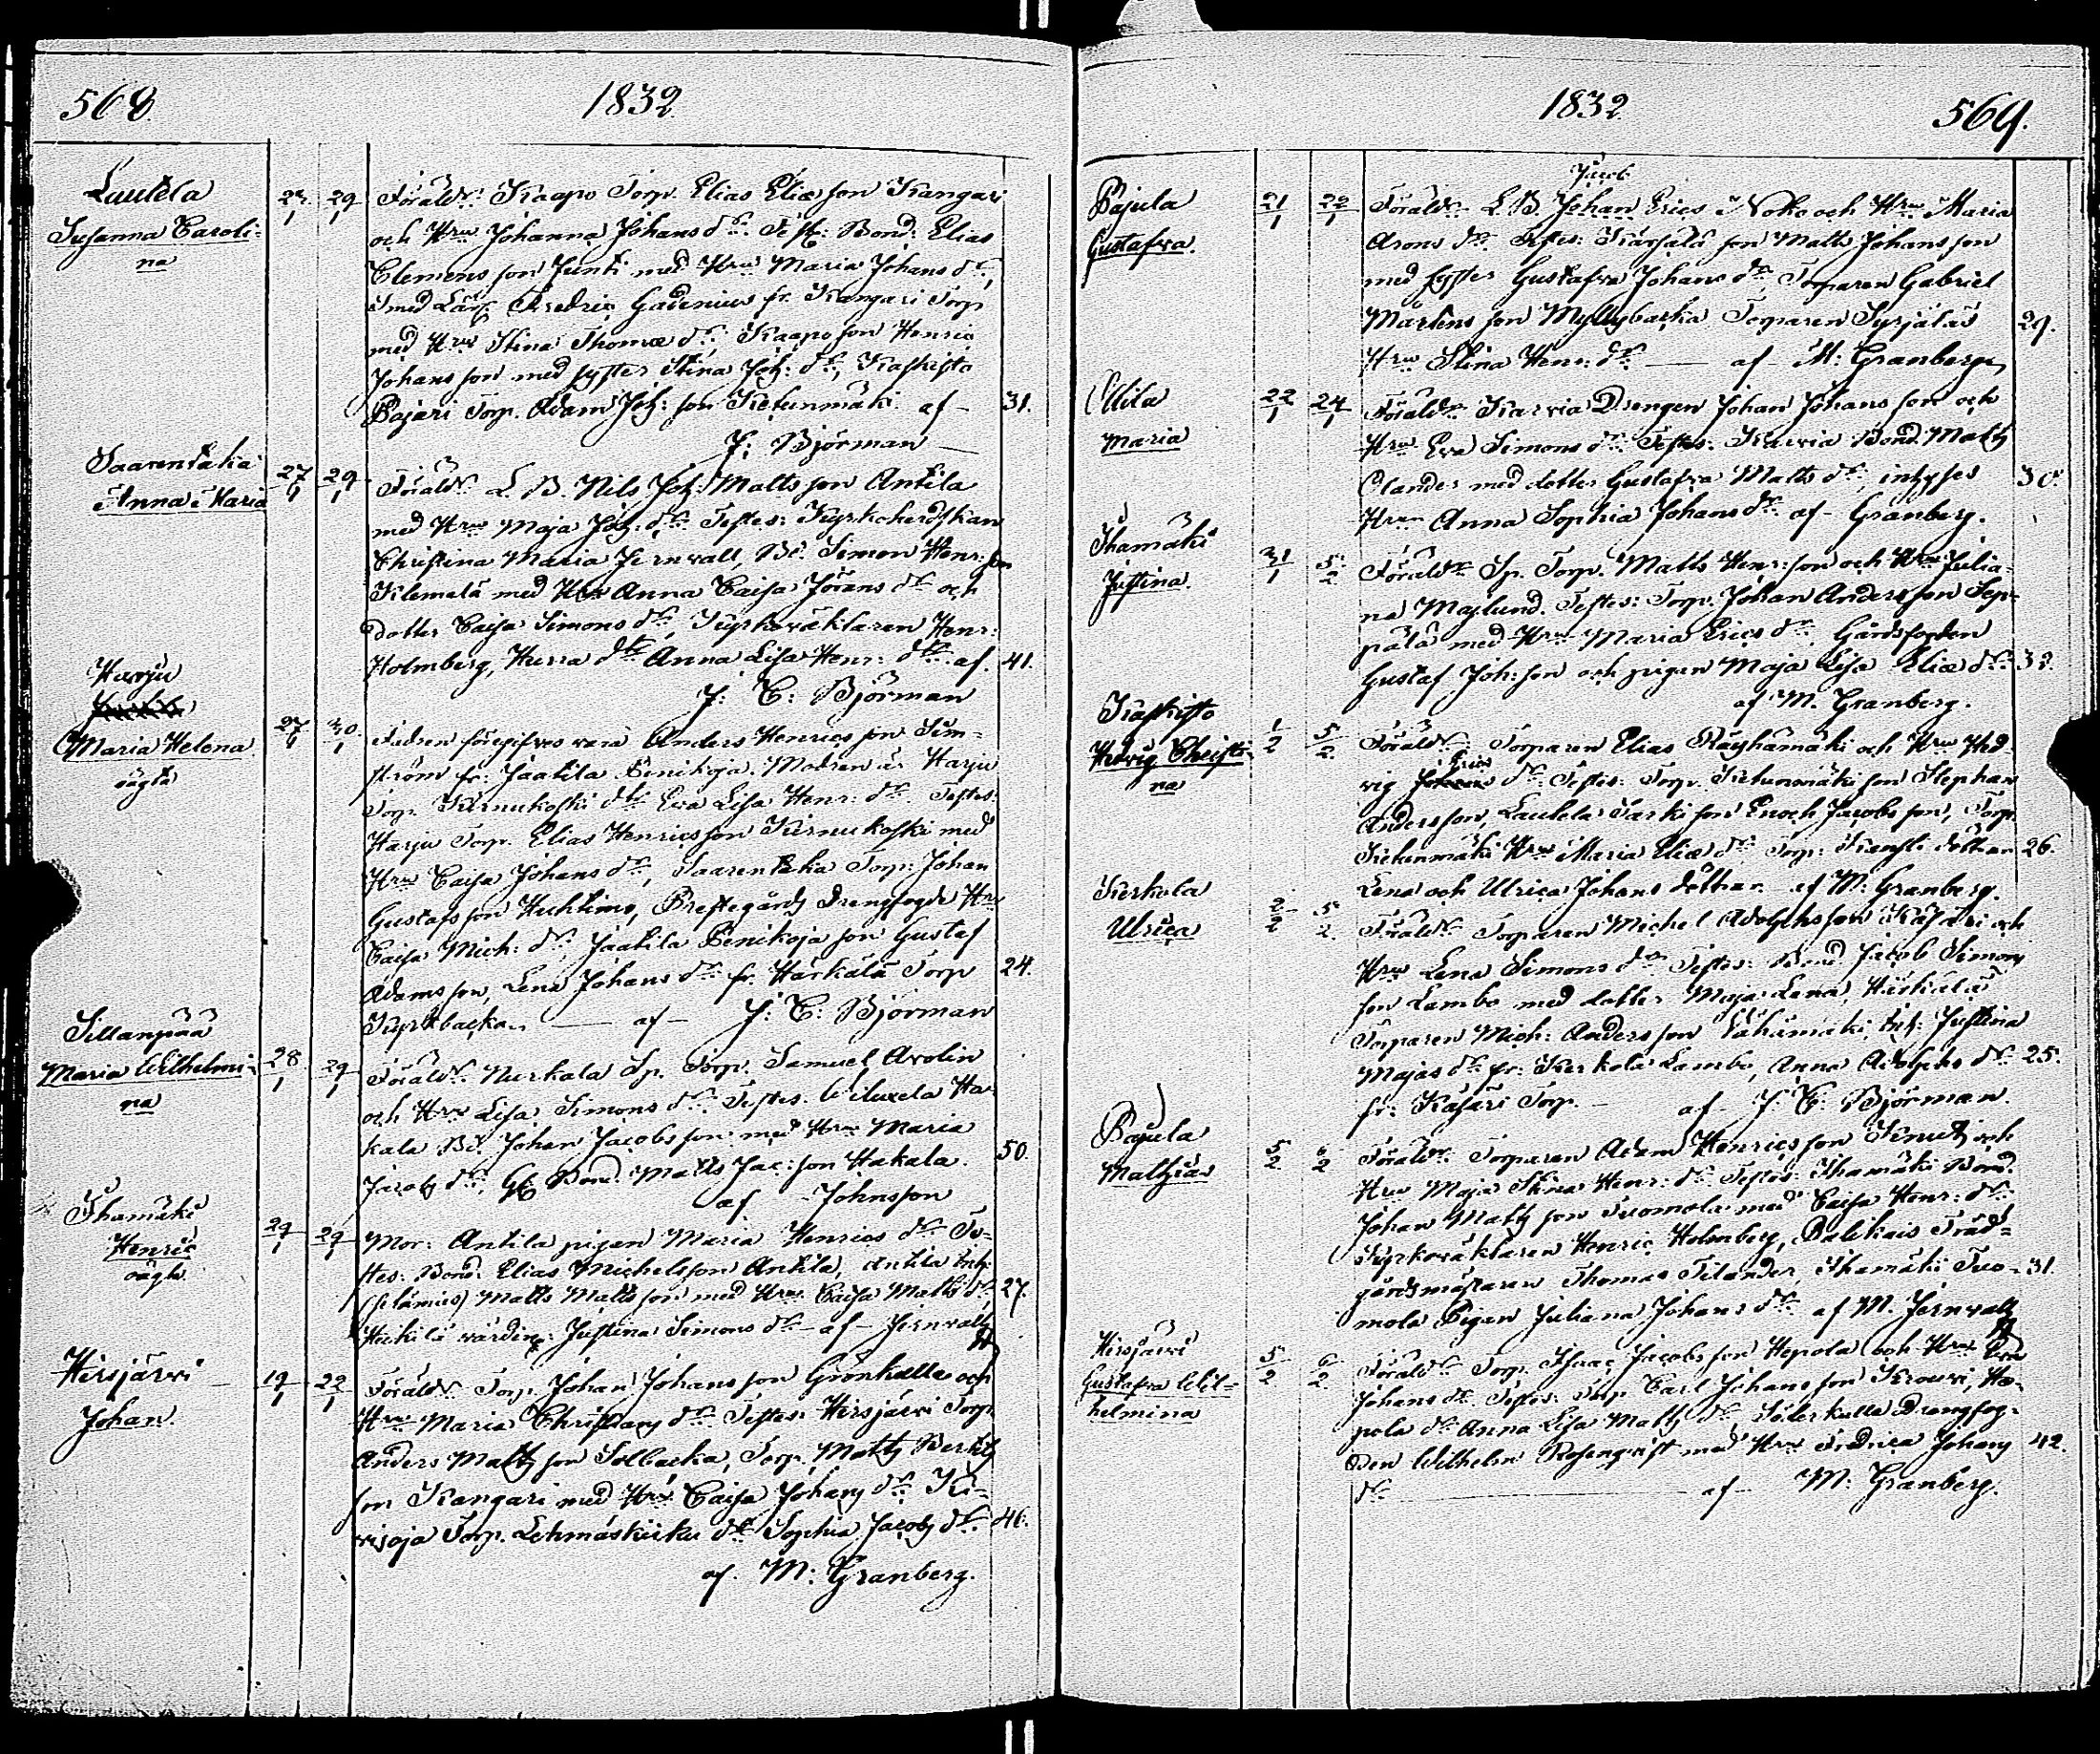 568. 1832.
Lautela
Susanna Caroli-
na
23/1 29/1
Föräldr: Kaapo Torp. Elias Eliæ son Kangari
och Hru Johanna Johans dr. Test: Bond: Elias
Clemens son Junti med Hru Maria Johans dr,
Smed Lärl. Fredric Gadenius fr. Kangari Torp
med Hru Stina Thomæ dr, Kaapo son Henric
Johans son med syster Stina Joh: dr, Kaskisto
Pajari Torp. Adam Joh: son Ketunmäki af — 31.
J: Björman
Saarentaka
Anna Maria
27/1 29/1
Föräldr: L. B. Nils Joh: Matts son Antila
med Hru Maja Joh: dr. Testes: Kyrkoherdskan
Christina Maria Jernvall, Bd. Simon Henr: son
Klemelä med Hru Anna Caisa Jörans dr och
dotter Caisa Simons dr, Kyrkoväktaren Henr:
Holmberg, Hurra dtr Anna Lisa Henr: dtr. af. 41.
J: C: Björman
Harju
Maria Helena
oägta
27/1 30/1
Fadren föregifves vara Anders Henrics son Sim-
ström fr: Jaatila Penikoja. Modren är Harju
Torp. Kirnukoski dtr Eva Lisa Henr: dr. Testes:
Harju Torp. Elias Henrics son Kirnukoski med
Hru Caisa Johans dr, Saarentaka Torp: Johan
Gustafs son Huhtimo, Prestegårds Drengfogde Hru
Caisa Mich: dr, Jaatila Penikoja son Gustaf
Adams son, Lena Johans dr fr. Härkälä Torp 24.
Kyrkbacka. — af — J: C: Björman
Sillanpää
Maria Wilhelmi-
na
28/1 29/1
Föräldr: Nurkala Sp. Torp. Samuel Avolin
och Hru Lisa Simons dr. Testes. Ha-
kala Bd. Johan Jacobs son med Hru Maria
Jacobs dr, Bond. Matts Jac: son Hakala. 50.
af Johnsson
Ihamäki
Henric
oägta
29/1 29/1
Mor: Antila pigan Maria Henrics dr Te-
stes: Bond: Elias Michelsson Antila, Antila Inh:
Matts Matts son med Hru Caisa Matts dr, 27.
Heikilä värdin: Justina Simons dr af — Jernvall
Hirsjärvi
Johan.
19/1 22/1
Föräldr: Torp. Johan Johans son Grönkulla och
Hru Maria Christians dr. Testes: Hirsjärvi Torp.
Anders Matts son Solbacka, Torp. Matts Bertils
son Kangari med Hru Caisa Johans dr. Ki-
visoja Torp. Lehmäskicku dtr Sophia Jacobs dr. 46.
af. M: Granberg.
1832 569.
Pajula
Gustafva.
21/1 22/1
Jacob
Föräldr: L. B. Johan Erics i Noko och Hru Maria
Arons dr. Testes: Kärsälä son Matts Johans son
med syster Gustafva Johans dr, Torparen Gabriel
Mårtens son Myllybacka Torparen Syrjäläs 29.
Hru Stina Henr: dr — af — M: Granberg
Ellilä
Maria
22/1 24/1
Föräldr: Karvia Drengen Johan Johans son och
Hru Eva Simons dr Testes: Karvia Bond. Matts
Olander med dotter Gustafva Matts dr, inhyses 30.
Hru Anna Sophia Johans dr af — Granberg.
Ihamäki
Justina.
31/1 5/2
Föräldr Sp. Torp. Matts Henr: son och Hru Julia-
na Maslund. Testes: Torp. Johan Anders son Sep-
pälä med Hru Maria Erics dr, Gårdsfogden
Gustaf Joh: son och pigan Maja Lisa Eliæ dr. 32.
af M. Granberg.
Kaskisto
Hedvig Christi-
na
1/2 5/2
Föräldr: Torparen Elias Räyhämäki och Hru Hed-
Erics
vig Johans dr Testes: Torp. Ketunmäki son Stephan
Anders son, Lautela Särki son Enoch Jacobs son, Torp.
Ketunmäki Hru Maria Eliæ dr Torp: döttrar 26.
Lena och Ulrica Johans döttrar. af M: Granberg.
Kerkola
Ulrica
2/2 5/2
Föräldr: Torparen Michel Adolphs son Kasari och
Hru Lena Simons dr Testes: Bond. Jacob Simons
son Lambo med dotter Maja Lena, Härkälä
Torparen Mich: Anders son Lähämäki, Inh: Justina
Majas dr fr: Kerkola Lambo, Anna Adolphs dr 25.
fr: Kasari Torp. — af — J: C: Björman.
Pajula
Mathias
5/2 6/2
Föräldr: Torparen Adam Henrics son Knuts och
Hru Maja Stina Henr: dr Testes: Ihamäki Bond.
Johan Matts son Tuomola med Caisa Henr: dr
Kyrkoväktaren Henric Holmberg, Palikais Träd-
gårdsmästaren Thomas Tilander, Ihamäki Tuo- 31
mola Pigan Juliana Johans dr. af M. Jernvall
Hirsjärvi
Gustafva Wil-
helmina
5/2 6/2
Föräldr Torp. Isaac Jacobs son Hepola och Hru Eva
Johans dr. Testes: Torp Carl Johans son Krouvi, He-
pola dr Anna Lisa Matts dr, Söderkulla Drengfog-
den Wilhelm Rosenqvist med Hru Fredrica Johans 42.
dr — af — M: Granberg.